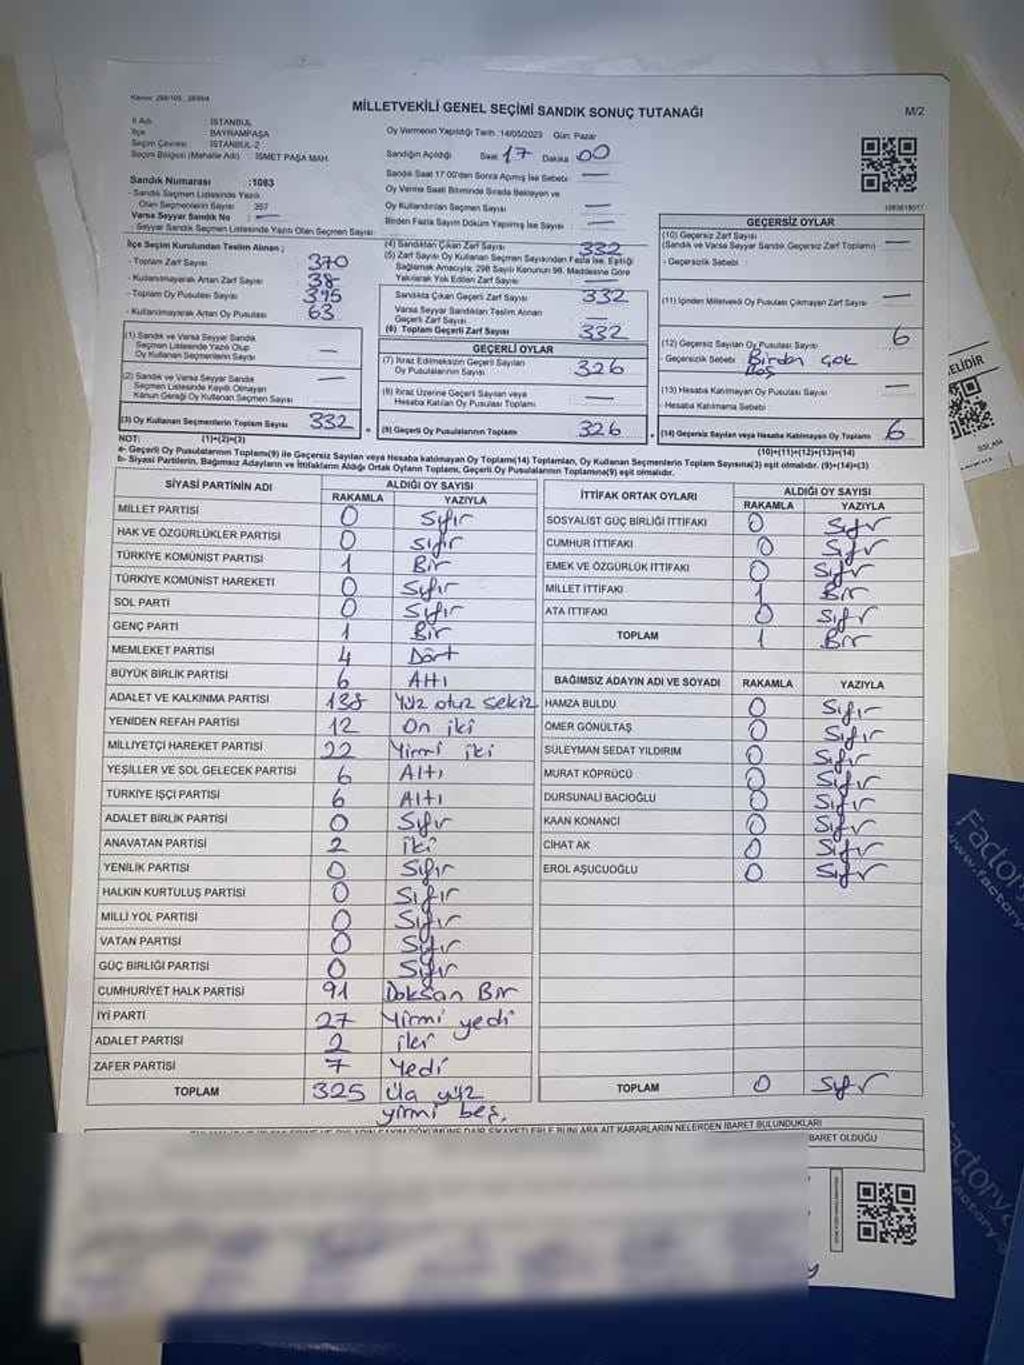 MİLLETVEKİLİ GENEL SEÇİMİ SANDIK SONUÇ TUTANAĞI
M/2
İl Adı : İSTANBUL
İlçe : BAYRAMPAŞA
Seçim Çevresi : İSTANBUL-2
Seçim Bölgesi (Mahalle Adı) : İSMET PAŞA MAH.
Sandık Numarası :1083
- Sandık Seçmen Listesinde Yazılı
Olan Seçmenlerin Sayısı : 367
Varsa Seyyar Sandık No : —
- Seyyar Sandık Seçmen Listesinde Yazılı Olan Seçmen Sayısı
Oy Vermenin Yapıldığı Tarih :14/05/2023 Gün: Pazar
Sandığın Açıldığı Saat 17 Dakika 00
Sandık Saat 17:00'den Sonra Açılmış İse Sebebi: —
Oy Verme Saati Bitiminde Sırada Bekleyen ve
Oy Kullandırılan Seçmen Sayısı —
Birden Fazla Sayım Döküm Yapılmış İse Sayısı —
İlçe Seçim Kurulundan Teslim Alınan ;
- Toplam Zarf Sayısı 370
- Kullanılmayarak Artan Zarf Sayısı 38
- Toplam Oy Pusulası Sayısı 395
- Kullanılmayarak Artan Oy Pusulası 63
(1) Sandık ve Varsa Seyyar Sandık
Seçmen Listesinde Yazılı Olup
Oy Kullanan Seçmenlerin Sayısı —
(2) Sandık ve Varsa Seyyar Sandık
Seçmen Listesinde Kaydı Olmayan
Kanun Gereği Oy Kullanan Seçmen Sayısı —
(3) Oy Kullanan Seçmenlerin Toplam Sayısı 332
(4) Sandıktan Çıkan Zarf Sayısı 332
(5) Zarf Sayısı Oy Kullanan Seçmen Sayısından Fazla İse, Eşitliği
Sağlamak Amacıyla, 298 Sayılı Kanunun 98. Maddesine Göre
Yakılarak Yok Edilen Zarf Sayısı —
Sandıkta Çıkan Geçerli Zarf Sayısı 332
Varsa Seyyar Sandıktan Teslim Alınan
Geçerli Zarf Sayısı —
(6) Toplam Geçerli Zarf Sayısı 332
GEÇERLİ OYLAR
(7) İtiraz Edilmeksizin Geçerli Sayılan
Oy Pusulalarının Sayısı 326
(8) İtiraz Üzerine Geçerli Sayılan veya
Hesaba Katılan Oy Pusulası Toplamı —
(9) Geçerli Oy Pusulalarının Toplamı 326
GEÇERSİZ OYLAR
(10) Geçersiz Zarf Sayısı
(Sandık ve Varsa Seyyar Sandık Geçersiz Zarf Toplamı) —
- Geçersizlik Sebebi :
(11) İçinden Milletvekili Oy Pusulası Çıkmayan Zarf Sayısı —
(12) Geçersiz Sayılan Oy Pusulası Sayısı 6
- Geçersizlik Sebebi Birden çok
Boş
(13) Hesaba Katılmayan Oy Pusulası Sayısı —
- Hesaba Katılmama Sebebi
(14) Geçersiz Sayılan veya Hesaba Katılmayan Oy Toplamı 6
NOT: (1)+(2)=(3) (10)+(11)+(12)+(13)=(14)
a- Geçerli Oy Pusulalarının Toplamı(9) ile Geçersiz Sayılan veya Hesaba Katılmayan Oy Toplamı(14) Toplamları, Oy Kullanan Seçmenlerin Toplam Sayısına(3) eşit olmalıdır. (9)+(14)=(3)
b- Siyasi Partilerin, Bağımsız Adayların ve İttifakların Aldığı Ortak Oyların Toplamı, Geçerli Oy Pusulalarının Toplamına(9) eşit olmalıdır.
SİYASİ PARTİNİN ADI ALDIĞI OY SAYISI
RAKAMLA YAZIYLA
MİLLET PARTİSİ 0 Sıfır
HAK VE ÖZGÜRLÜKLER PARTİSİ 0 Sıfır
TÜRKİYE KOMÜNİST PARTİSİ 1 Bir
TÜRKİYE KOMÜNİST HAREKETİ 0 Sıfır
SOL PARTİ 0 Sıfır
GENÇ PARTİ 1 Bir
MEMLEKET PARTİSİ 4 Dört
BÜYÜK BİRLİK PARTİSİ 6 Altı
ADALET VE KALKINMA PARTİSİ 138 Yüz otuz sekiz
YENİDEN REFAH PARTİSİ 12 On iki
MİLLİYETÇİ HAREKET PARTİSİ 22 Yirmi iki
YEŞİLLER VE SOL GELECEK PARTİSİ 6 Altı
TÜRKİYE İŞÇİ PARTİSİ 6 Altı
ADALET BİRLİK PARTİSİ 0 Sıfır
ANAVATAN PARTİSİ 2 iki
YENİLİK PARTİSİ 0 Sıfır
HALKIN KURTULUŞ PARTİSİ 0 Sıfır
MİLLİ YOL PARTİSİ 0 Sıfır
VATAN PARTİSİ 0 Sıfır
GÜÇ BİRLİĞİ PARTİSİ 0 Sıfır
CUMHURİYET HALK PARTİSİ 91 Doksan Bir
İYİ PARTİ 27 Yirmi yedi
ADALET PARTİSİ 2
ZAFER PARTİSİ 7 Yedi
TOPLAM 325 yüz
yirmi beş.
İTTİFAK ORTAK OYLARI ALDIĞI OY SAYISI
RAKAMLA YAZIYLA
SOSYALİST GÜÇ BİRLİĞİ İTTİFAKI 0 Sıfır
CUMHUR İTTİFAKI 0 Sıfır
EMEK VE ÖZGÜRLÜK İTTİFAKI 0 Sıfır
MİLLET İTTİFAKI 1 Bir
ATA İTTİFAKI 0 Sıfır
TOPLAM 1 Bir
BAĞIMSIZ ADAYIN ADI VE SOYADI RAKAMLA YAZIYLA
HAMZA BULDU 0 Sıfır
ÖMER GÖNÜLTAŞ 0 Sıfır
SÜLEYMAN SEDAT YILDIRIM 0 Sıfır
MURAT KÖPRÜCÜ 0 Sıfır
DURSUNALİ BACIOĞLU 0 Sıfır
KAAN KONANCI 0 Sıfır
CİHAT AK 0 Sıfır
EROL AŞUCUOĞLU 0 Sıfır
TOPLAM 0 Sıfır
KARARLARIN NELERDEN İBARET BULUNDUKLARI
BARET OLDUĞU
Factory
www.factory